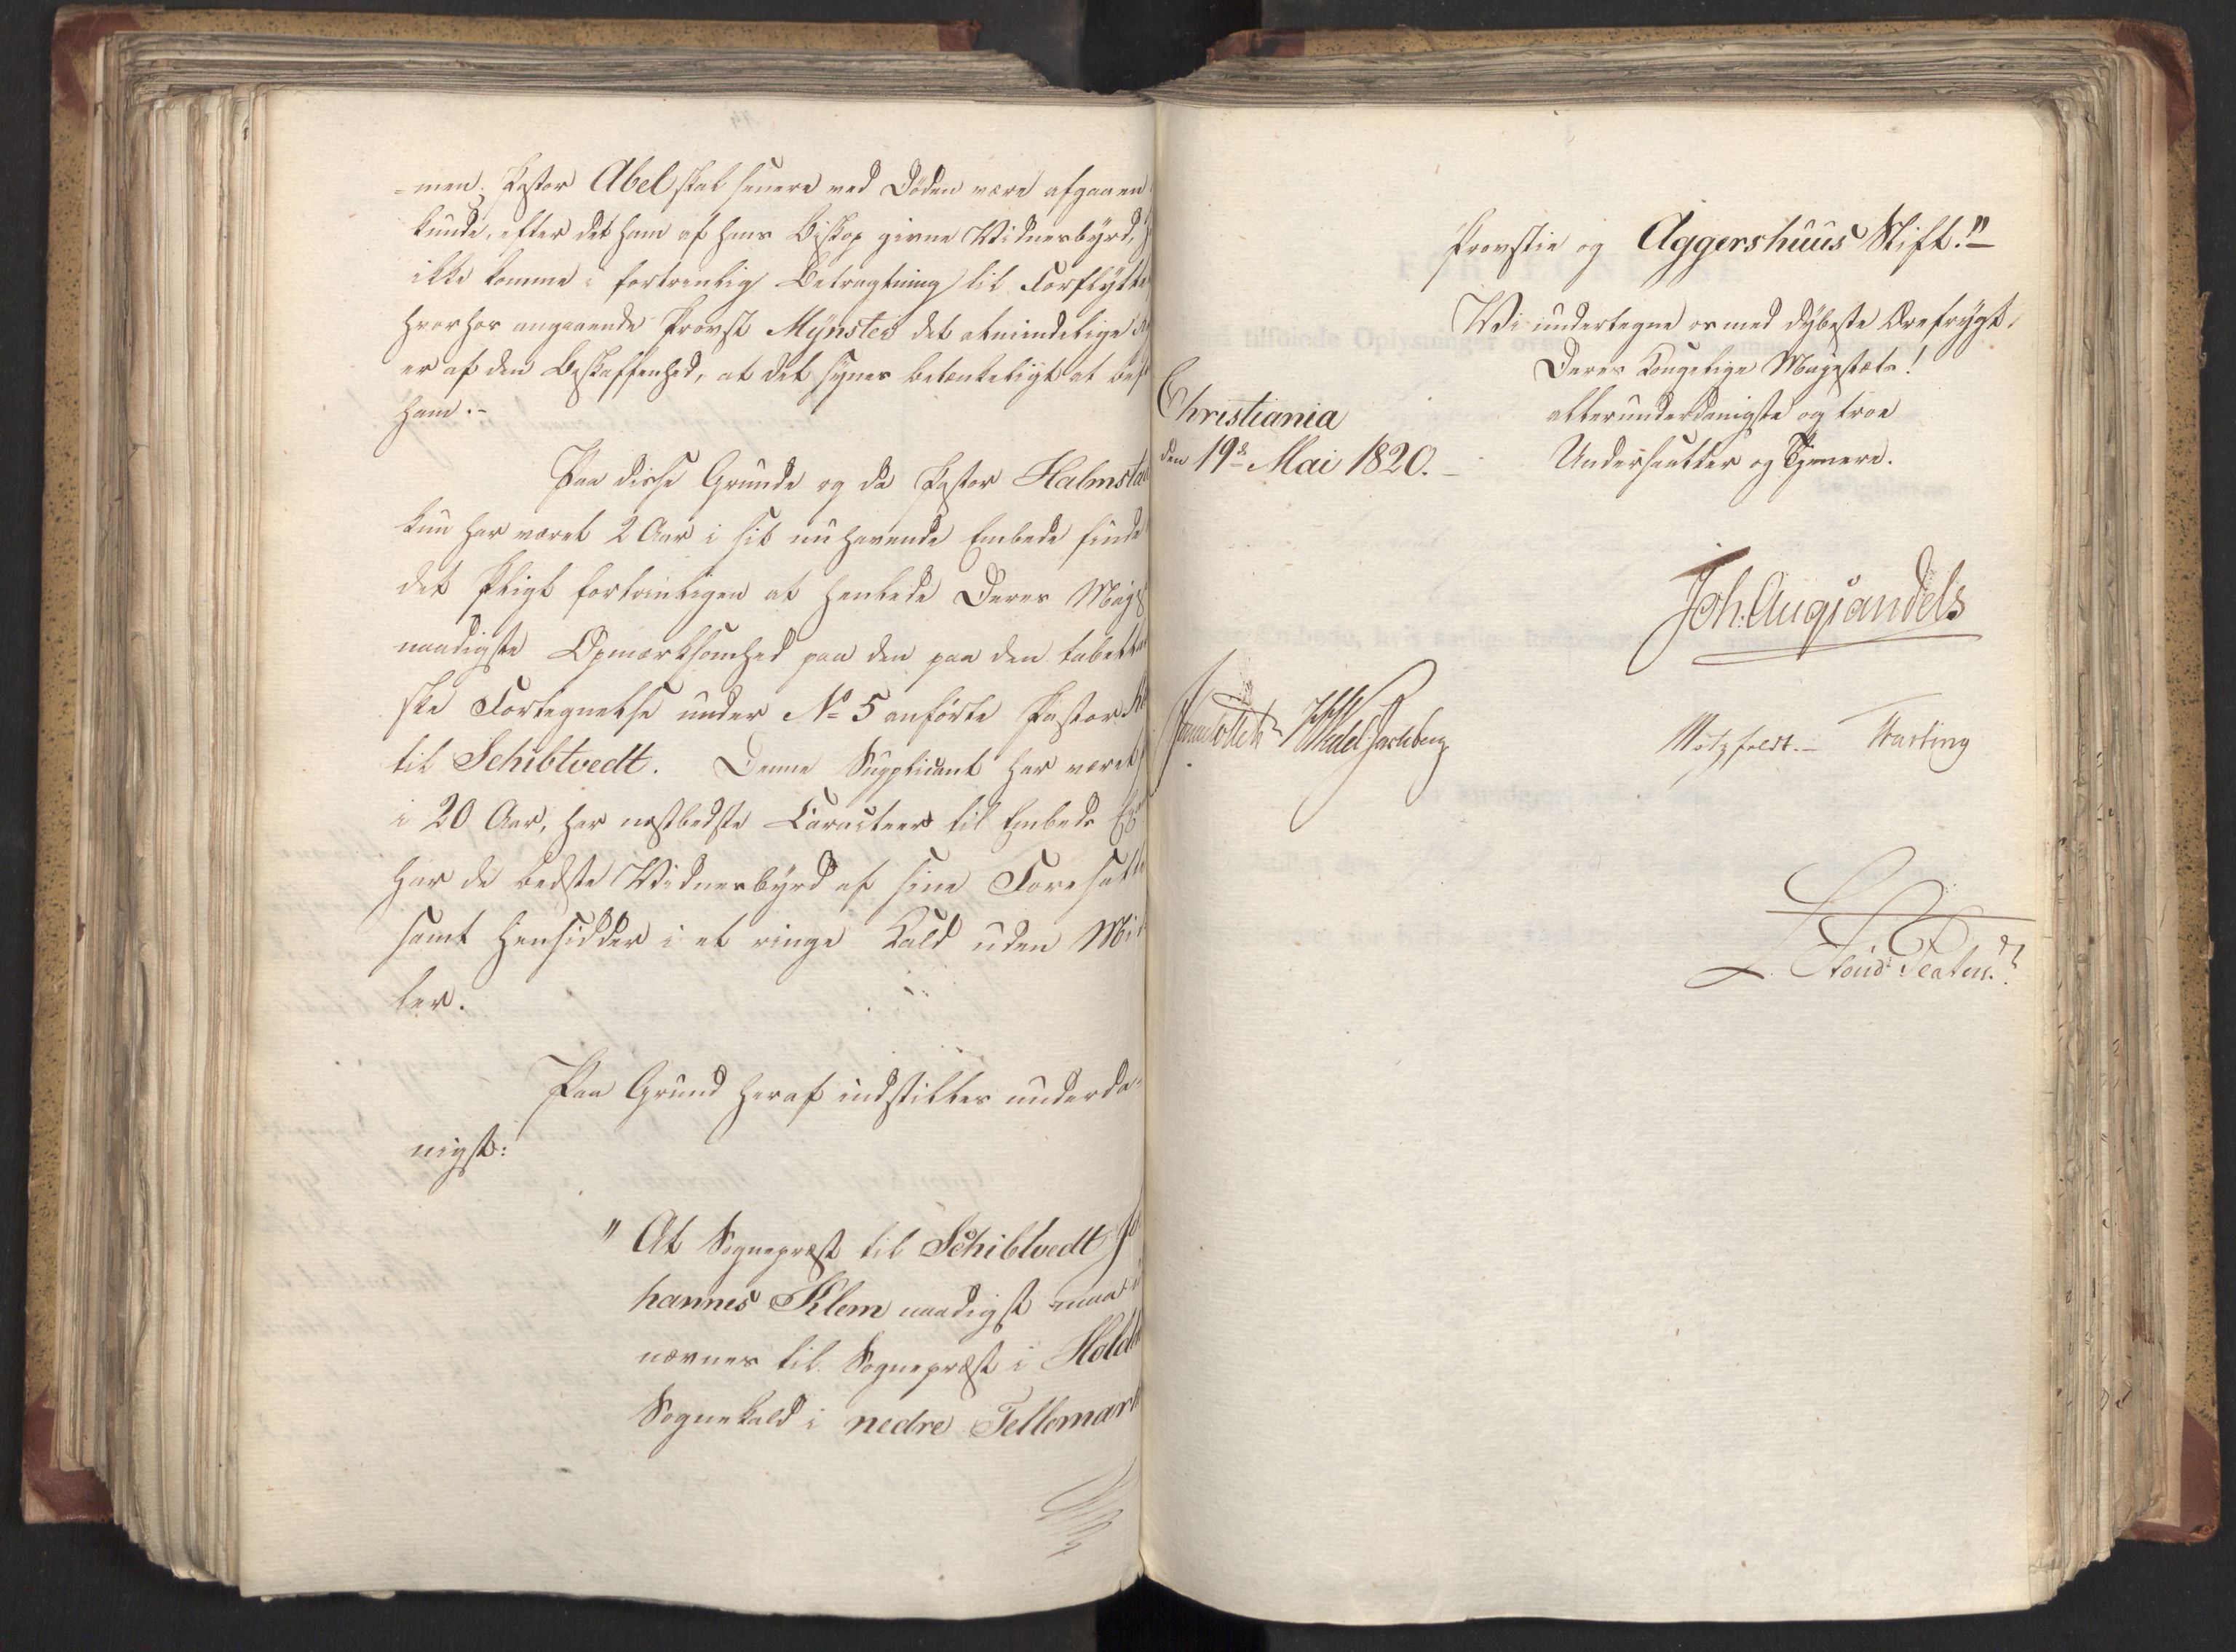 =men. Pastor Abel skal senere ved Döden være afgaaen
kunde, efter det ham af hans Biskop givne Vidnesbyrd,
ikke komme i fortrinlig Betragtning til Forflytte
hvorhos angaaende Provst Mÿnster det almindelige
er af den Beskaffenhed, at det synes betænkeligt at
ham.-
Paa disse Grunde og da Pastor Halmsta
kun har været 2 Aar i sit nu havende Embede finde
det Pligt fortrinligen at henlede Deres Maj
naadigste Opmærksomhed paa den paa den tabella
ske Fortegnelse under No 5 anförte Pastor Kl
til Schibtvedt. Denne Supplicant har været
i 20 Aar, har næstbedste Caracteer til Embeds Ex
har de bedste Vidnesbyrd af sine Foresatte
samt hensidder i et ringe Kald uden Mid
ler.
Paa Grund heraf indstilles underda-
nigst:
" At Sognepræst til Schibtvedt Jo
hannes Klem naadigst maa
nævnes til Sognepræst i Hold
Sognekald i nedre Tellemark
Provstie og Aggershuus Stift."
Vi undertegne os med dybeste Ærefrygt.
Deres Kongelige Majestæts!
allerunderdanigste og troe
Undersaatter og Tjenere.
Christiania
den 19de Mai 1820.
Joh. Aug. Sandels
Wedel Jarlsberg
Motzfeldt.